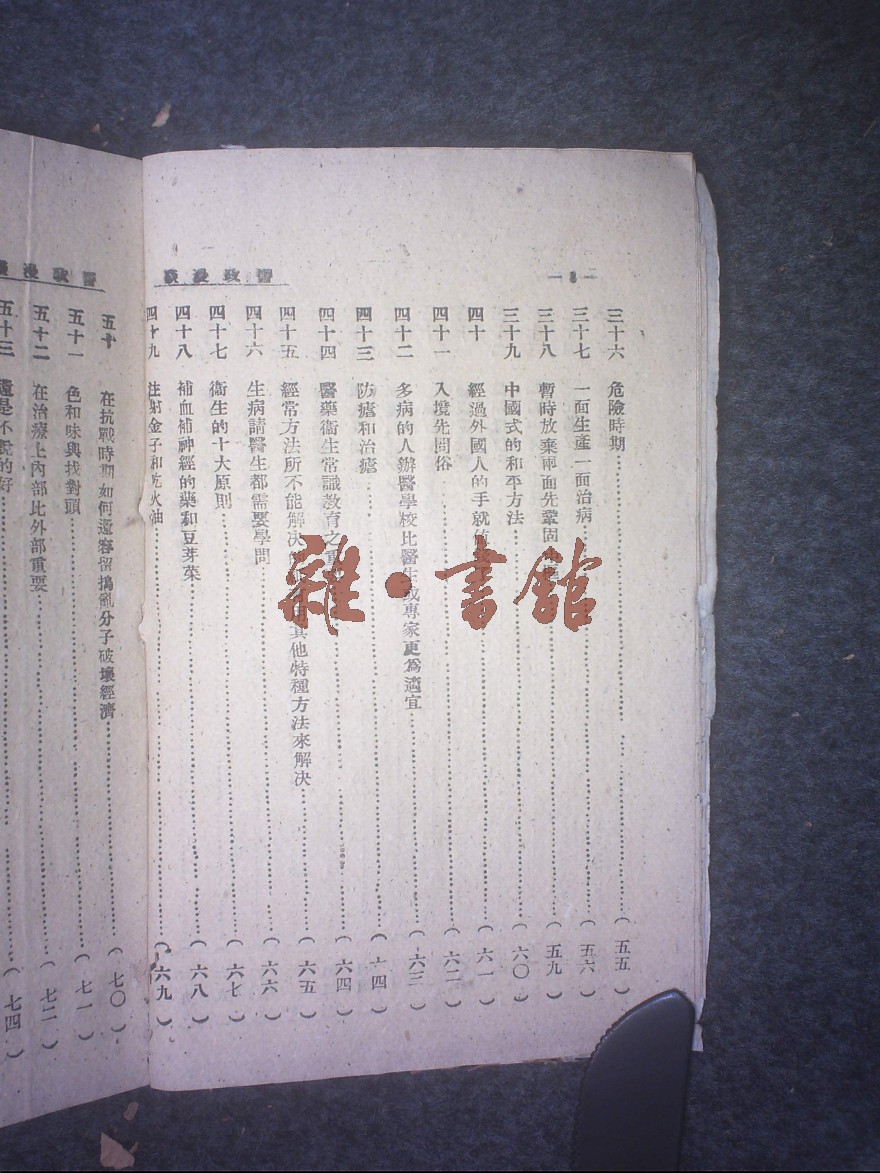 醫政漫談
—3—
三十六 危險時期 (五五)
三十七 一面生產一面治病 (五六)
三十八 暫時放棄兩面先鞏固 (五九)
三十九 中國式的和平方法 (六〇)
四十 經過外國人的手就值 (六一)
四十一 入境先問俗 (六二)
四十二 多病的人辦醫學校比醫生或專家更為適宜 (六三)
四十三 防瘧和治瘧 (六四)
四十四 醫藥衞生常識教育之重 (六四)
四十五 經常方法所不能解決 其他特種方法來解決 (六五)
四十六 生病請醫生都需要學問 (六六)
四十七 衞生的十大原則 (六七)
四十八 補血補神經的藥和豆芽菜 (六八)
四十九 注射金子和吃火油 (六九)
醫政漫
五十 在抗戰時期如何還容留搗亂分子破壞經濟 (七〇)
五十一 色和味與找對頭 (七一)
五十二 在治療上內部比外部重要 (七二)
五十三 還是不說的好 (七四)
雜·書館